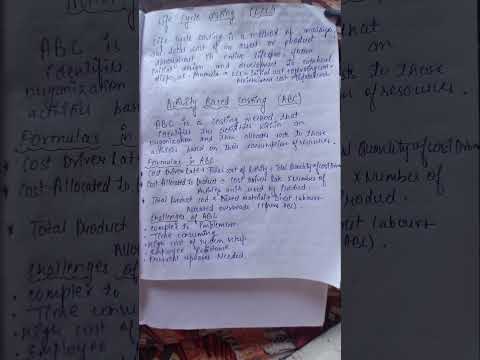 Life Cycle Costing (LCC)
Life Cycle Costing is a method of
total cost of an asset or product
throughout its entire lifecycle from
initial design and development to
disposal. Formula = LCC = Initial cost + operating cost +
Maintenance cost +
Activity Based Costing (ABC)
ABC is a costing method that
identifies the activities within an
organization and then allocates cost to those
based on their consumption of resources.
Formulas in ABC
Cost Driver Rate = Total cost of Activity ÷ Total Quantity of Cost Driver
Cost Allocated to Product = Cost Driver Rate × Number of
Activity units used by Product
* Total Product cost = Direct Materials + Direct Labour +
Allocated overheads (from ABC)
Challenges of ABC
• Complex to Implement
• Time consuming
• High cost of system setup
• Employee Resistance
• Frequent updates Needed